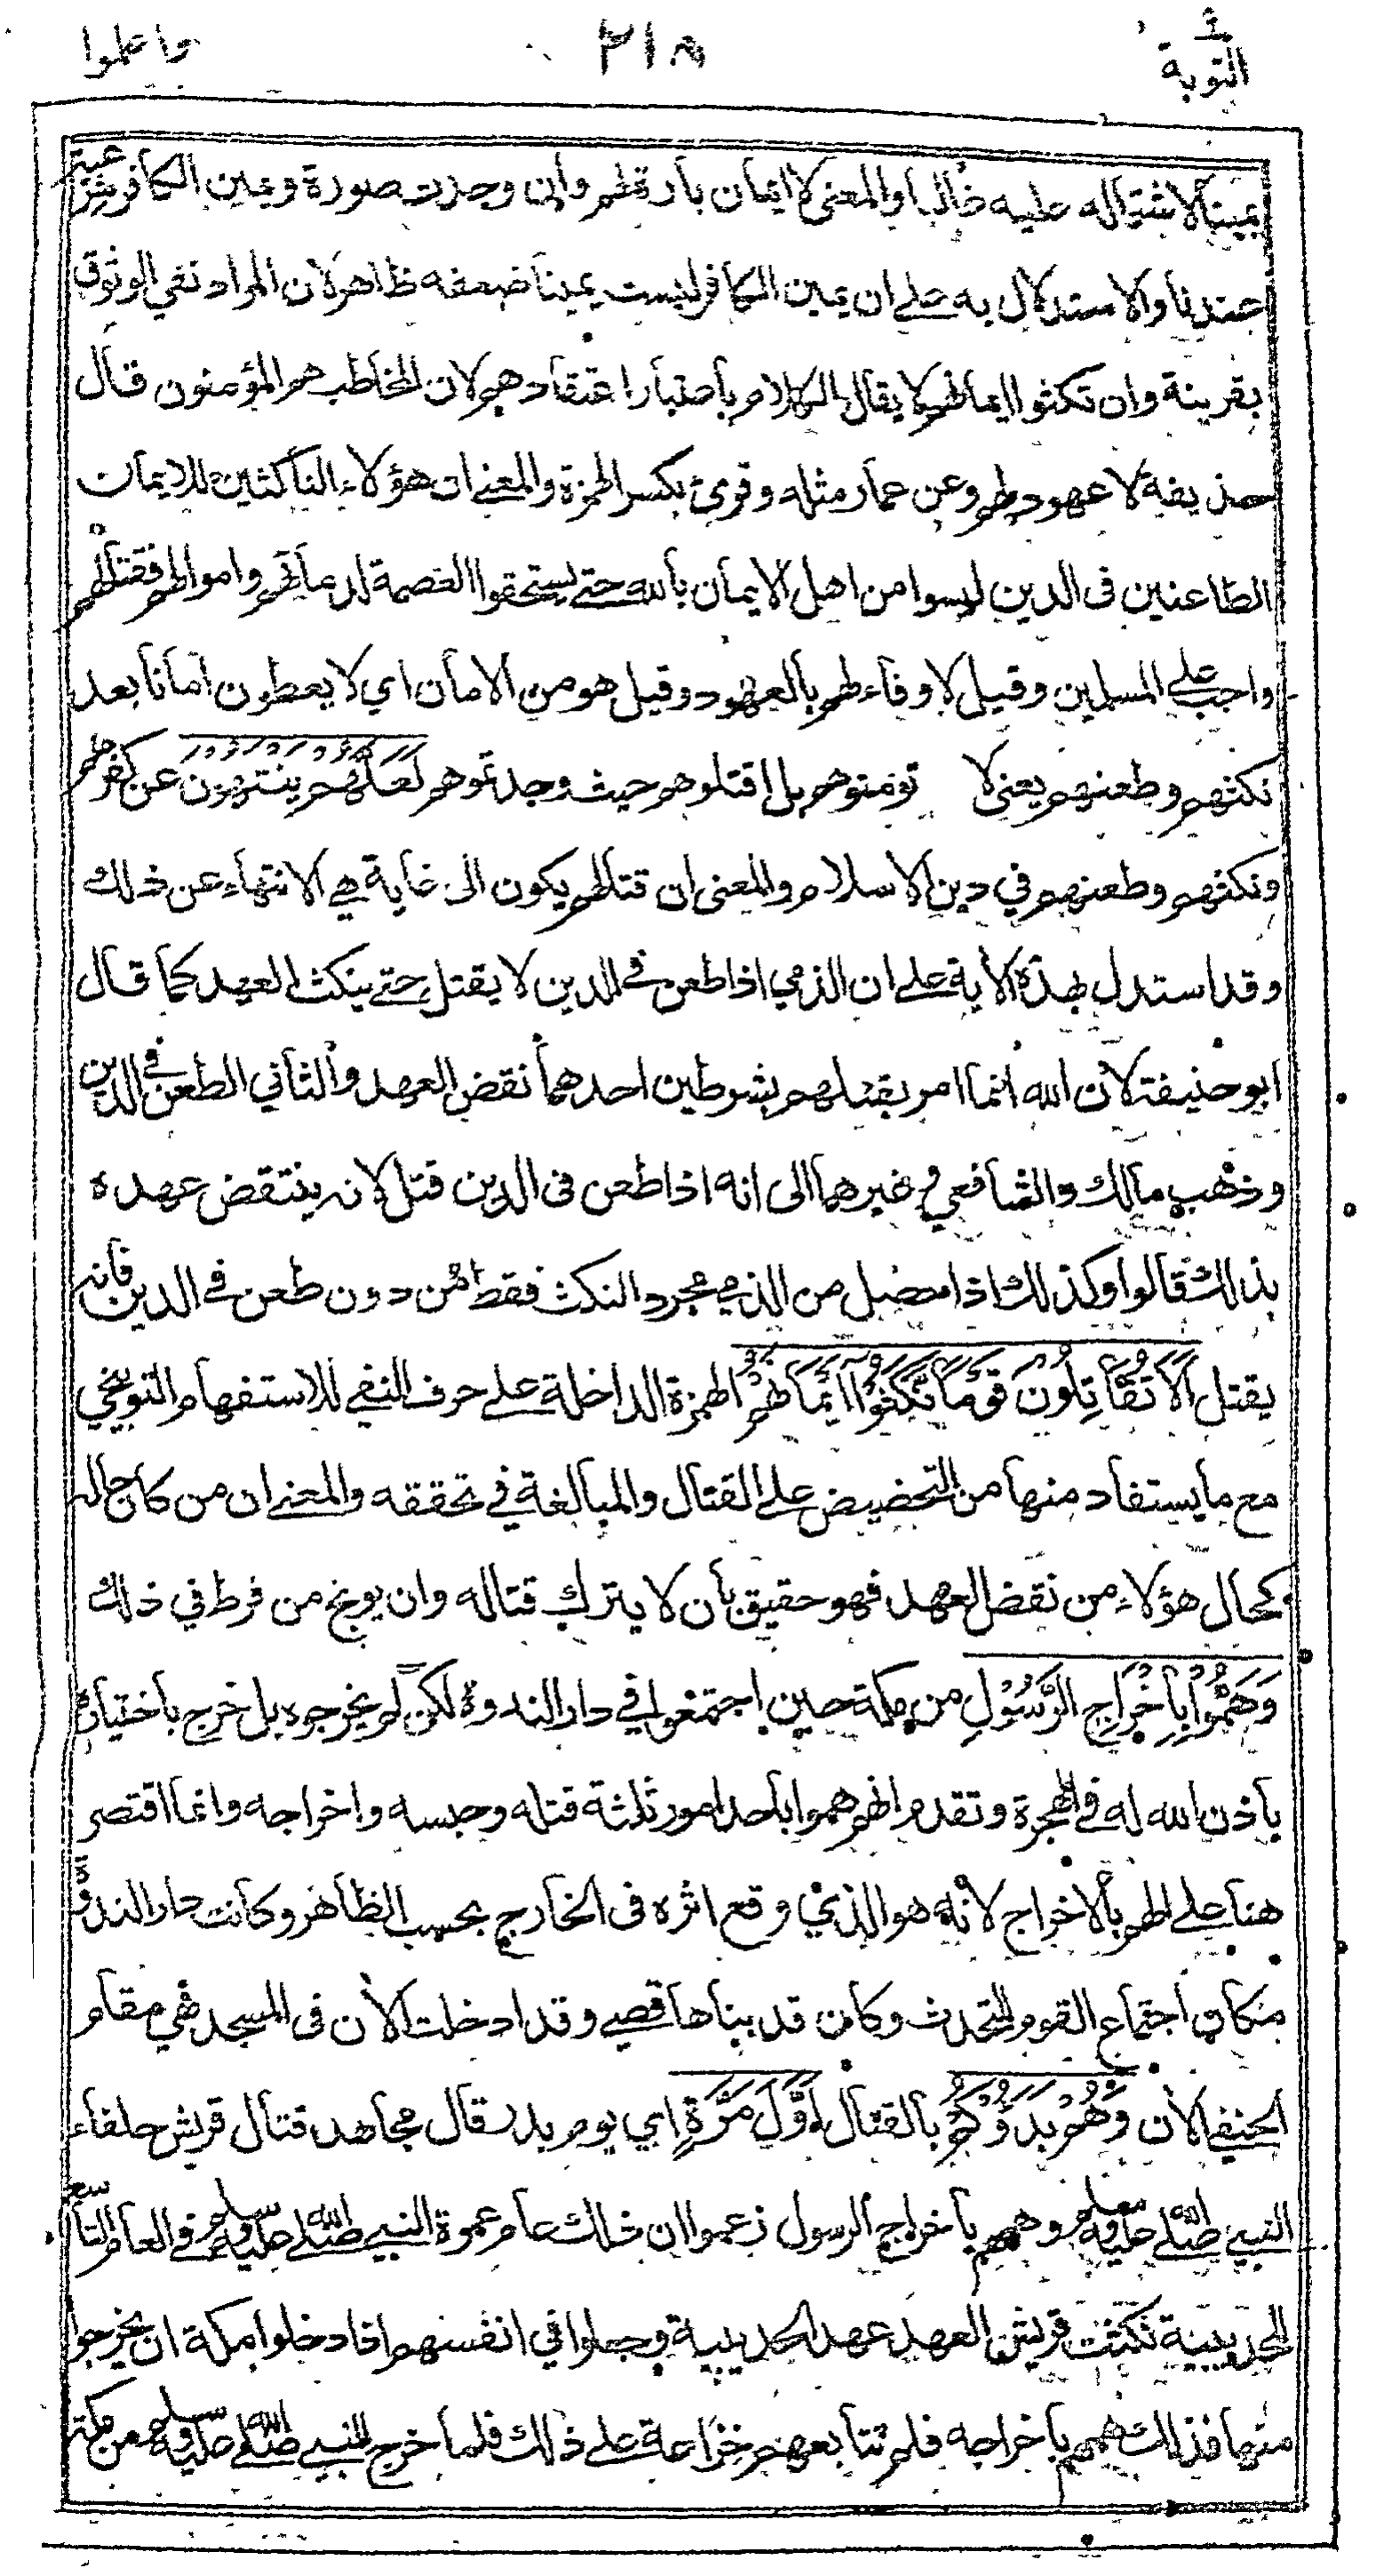 التوبة ٢١٨ واعلموا
يمينا لاشتماله عليه غالبا والمعنى لا ايمان بارة لهم وان وجدت صورة ويمين الكافر معتبرة
عندنا والاستدلال به على ان يمين الكافر ليست يمينا ضعفه ظاهر لان المراد نفي الوثوق
بقرينة وان نكثوا ايمانهم لا يقال الكلام باعتبار اعتقادهم لان المخاطب هو المؤمنون قال
حذيفة لا عهود لهم وعن عمار مثله وقرئ بكسر الهمزة والمعنى ان هؤلاء الناكثين للايمان
الطاعنين فى الدين ليسوا من اهل الايمان بالله حتى يستحقوا العصمة لدمائهم واموالهم فقتالهم
واجب على المسلمين وقيل لا وفاء لهم بالعهود وقيل هو من الامان اي لا يعطون امانا بعد
نكثهم وطعنهم يعنى لا تؤمنوهم بل اقتلوهم حيث وجدتموهم لَعَلَّهُمْ يَنْتَهُوْنَ عن كفرهم
ونكثهم وطعنهم في دين الاسلام والمعنى ان قتالهم يكون الى غاية هي الانتهاء عن ذلك
وقد استدل بهذه الأية على ان الذمي اذا طعن في الدين لا يقتل حتى ينكث العهد كما قال
ابو حنيفة لان الله انما امر بقتلهم بشرطين احدهما نقض العهد والثاني الطعن في الدين
وذهب مالك والشافعي وغيرهما الى انه اذا طعن فى الدين قتل لانه ينتقض عهده
بذلك قالوا وكذلك اذا حصل من الذمي مجرد النكث فقط من دون طعن في الدين فانه
يقتل اَلَا تُقَاتِلُوْنَ قَوْمًا نَّكَثُوْا اَيْمَانَهُمْ الهمزة الداخلة على حرف النفي للاستفهام التوبيخي
مع ما يستفاد منها من التحضيض على القتال والمبالغة في تحققه والمعنى ان من كان حاله
كحال هؤلاء من نقض العهد فهو حقيق بأن لا يترك قتاله وان يوبخ من فرط في ذلك
وَهَمُّوْا بِاِخْرَاجِ الرَّسُوْلِ من مكة حين اجتمعوا في دار الندوة لكن لم يخرجوه بل خرج باختياره
بأذن الله له في الهجرة وتقدم انهم هموا باحد امور ثلثة قتله وحبسه واخراجه وانما اقتصر
هنا على الهم بالاخراج لانه هو الذي وقع اثره فى الخارج بحسب الظاهر وكانت دار الندوة
مكان اجتماع القوم للتحدث وكان قد بناها قصي وقد ادخلت الأن فى المسجد فهي مقام
الحنفي الأن وَهُمْ بَدَءُوْكُمْ بالقتال اَوَّلَ مَرَّةٍ اي يوم بدر قال مجاهد قتال قريش حلفاء
النبي صلى الله عليه وسلم وهمهم باخراج الرسول زعموا ان ذلك عام عمرة النبي صلى الله عليه وسلم في العام التاسع
للحديبية نكثت قريش العهد عهد الحديبية وجعلوا في انفسهم اذا دخلوا مكة ان يخرجوا
منها فذلك همهم باخراجه فلم تتابعهم خزاعة على ذلك فلما خرج النبي صلى الله عليه وسلم من مكة